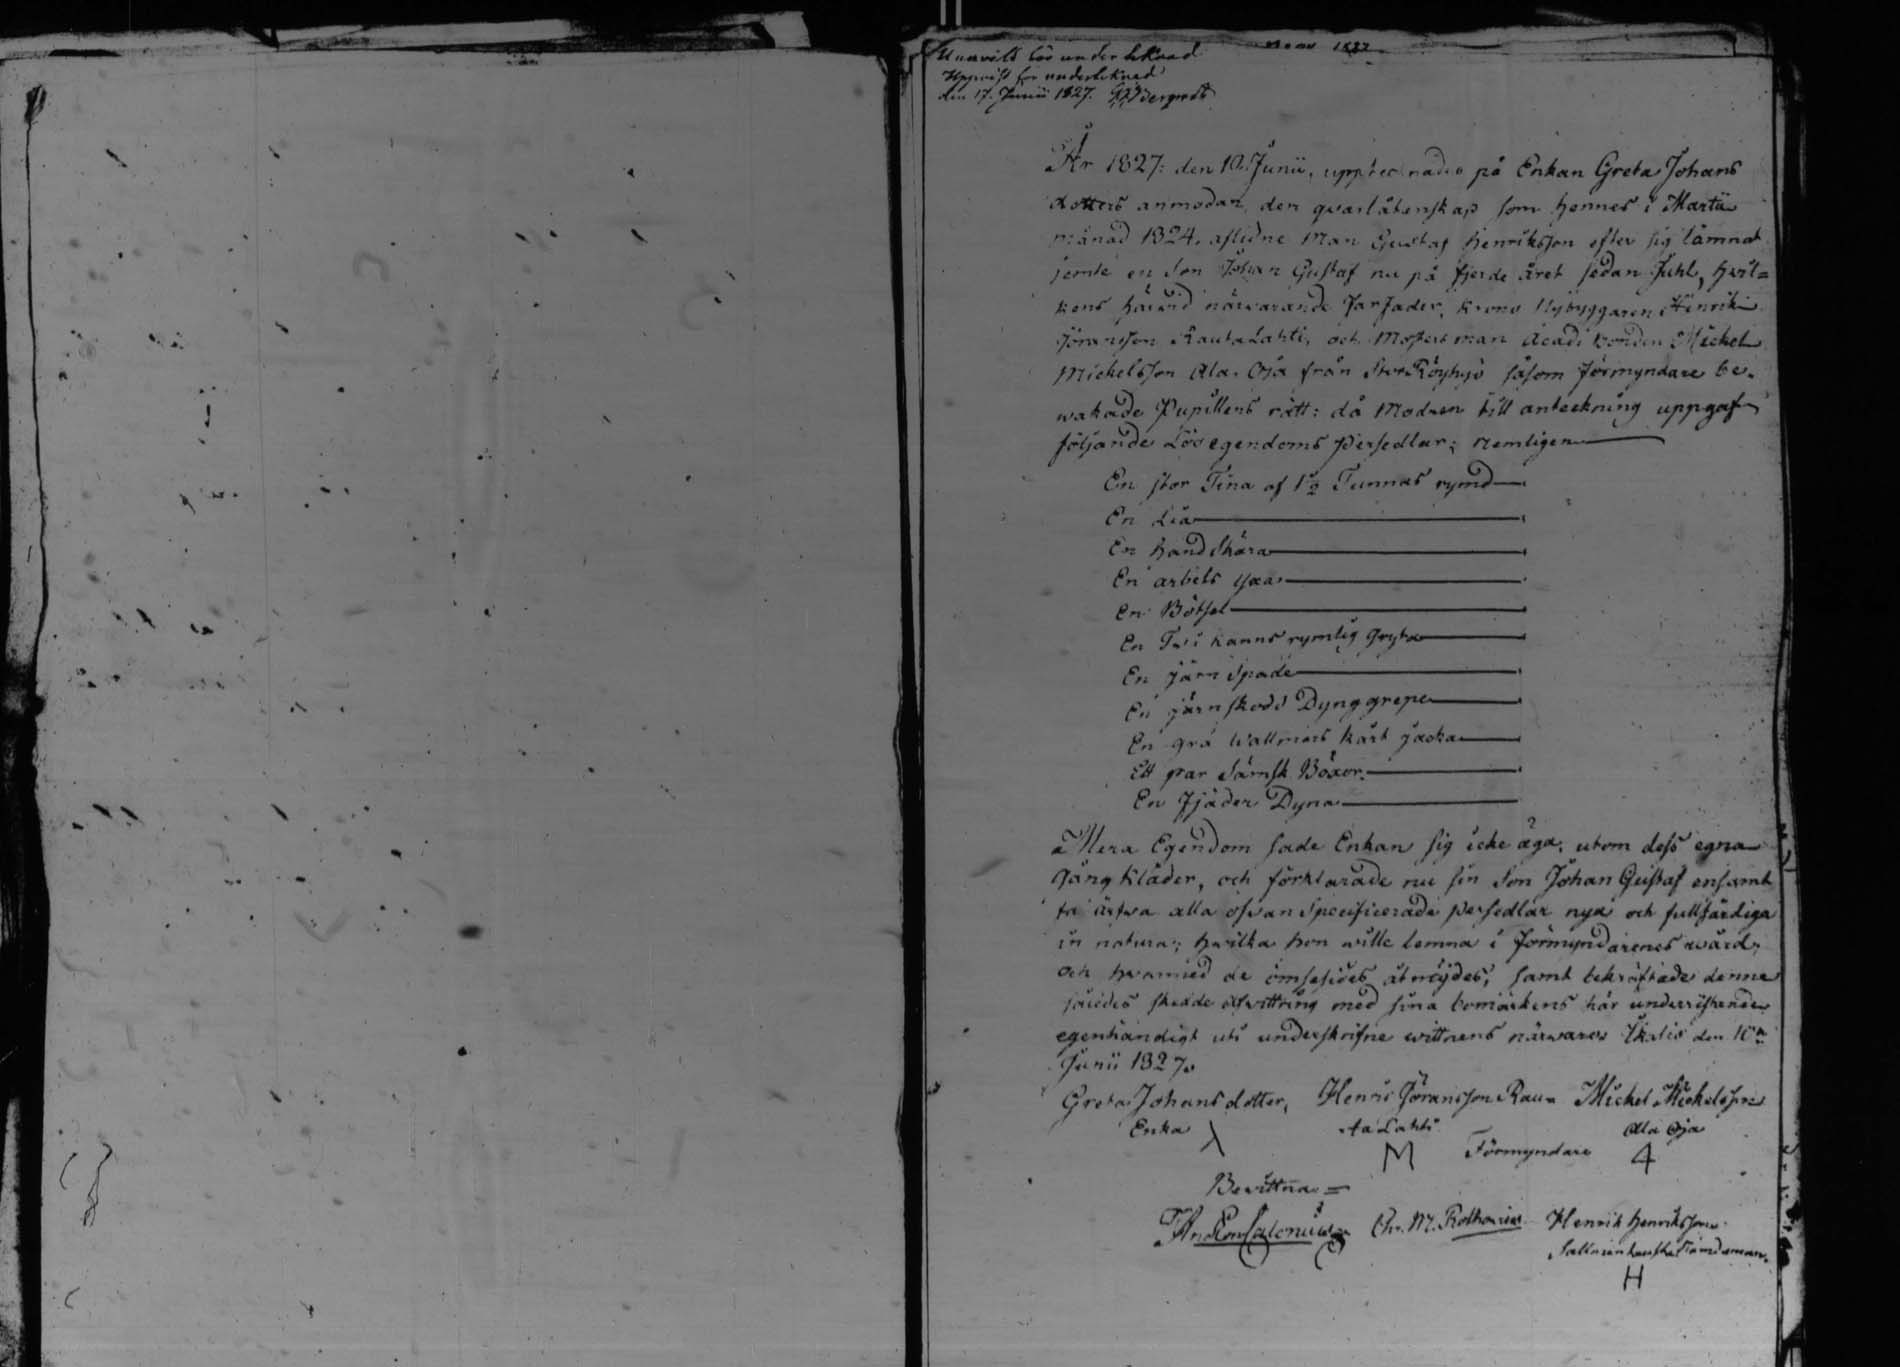 Uppvist för undertecknad
den 17. Junii 1827.
År 1827: den 10. Junii, upptecknades på Enkan Greta Johans
dotters anmodan, den qvarlåtenskap som hennes i Martii
månad 1824. aflidne Man Gustaf Henriksson efter sig lämnat
jemte en Son Johan Gustaf nu på fjerde året sedan Juhl, hvil=
kens härvid närvarande Farfader, Krono Nybyggaren Henrik
Göransson Rautalahti, och Mosters man Bonden Michel
Michelsson Ala Oja från såsom förmyndare be-
wakade Pupillens rätt: då Modren till anteckning uppgaf
följande Lösegendoms Persedlar; nemligen
En stor Tina af 1½ Tunnas rymd
En Lia
En handskära
En arbets yxa
En Bötsel
En Två kanns rymlig Gryta
En Järn Spade
En järnskodd Dynggrepe
En grå Wallmars kårt jacka
Ett par Sämsk Böxor.
En Fjäder Dyna
Mera Egendom sade Enkan sig icke äga, utom dess egna
Gångkläder, och förklarade nu sin Son Johan Gustaf ensamt
få ärfwa alla ofwan Specificerade persedlar nya och fullfärdiga
in natura; hwilka hon wille lemna i förmyndarenes wård;
och hwarmed de ömsesides åtnöjdes, samt bekräftade denne
således skedde afwittring med sina bomärkens här underristande
egenhändigt uti underskrifne wittnens närwaro den 10de
Junii 1827.
Greta Johansdotter, Henric Göransson Rau= Michel Michelsson
Enka ta Lahti Ala Oja
M Förmyndare 4
Bewittna =
Chr. M. Henrik Henriksson
Nämdeman.
H